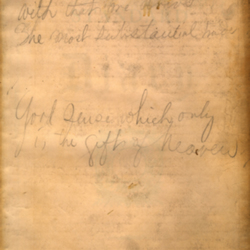 with that you
The most substantial
Good Sense which only
is the gift of Heaven